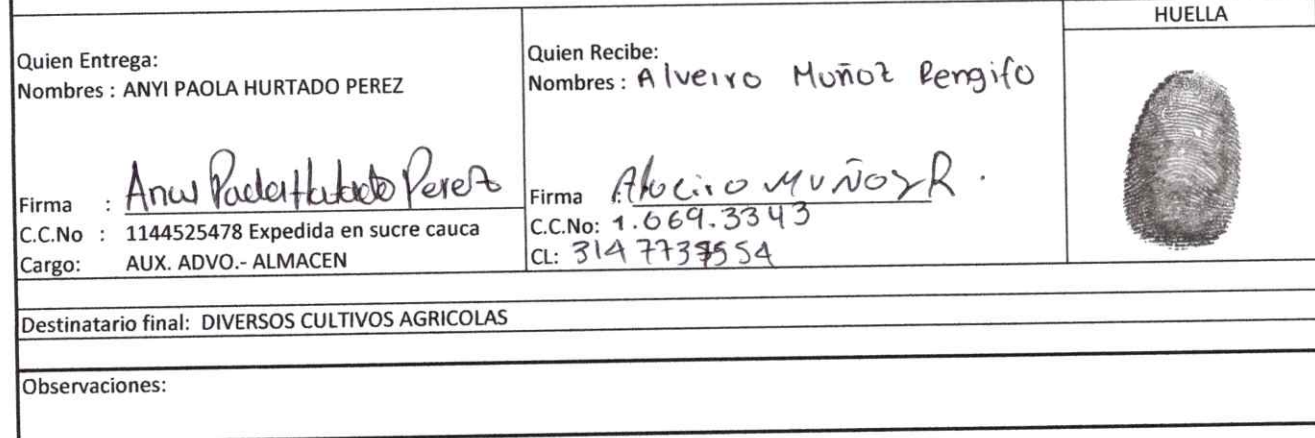 HUELLA
Quien Entrega:
Nombres : ANYI PAOLA HURTADO PEREZ
Firma :
Perez
C.C.No : 1144525478 Expedida en sucre cauca
Cargo: AUX. ADVO.- ALMACEN
Quien Recibe:
Nombres : Alveiro Muñoz Rengifo
Firma Alveiro MUÑOZ R.
C.C.No: 1.069.3343
CL: 3147737554
Destinatario final: DIVERSOS CULTIVOS AGRICOLAS
Observaciones: